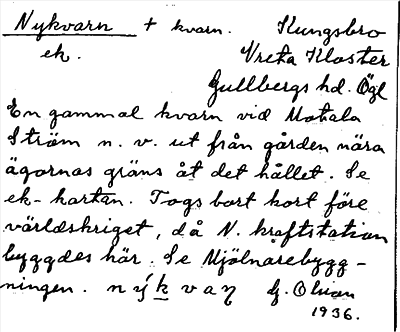 Nykvarn + kvarn. Kungsbro
ek. Vreta Kloster
Gullbergs hd. Ögl
En gammal kvarn vid Motala
Ström n. v. ut från gården nära
ägornas gräns åt det hållet. Se
ek-kartan. Togs bort kort före
världskriget, då N. kraftstation
byggdes här. Se Mjölnarebygg-
ningen. nýkvaɳ G. Olson
1936.